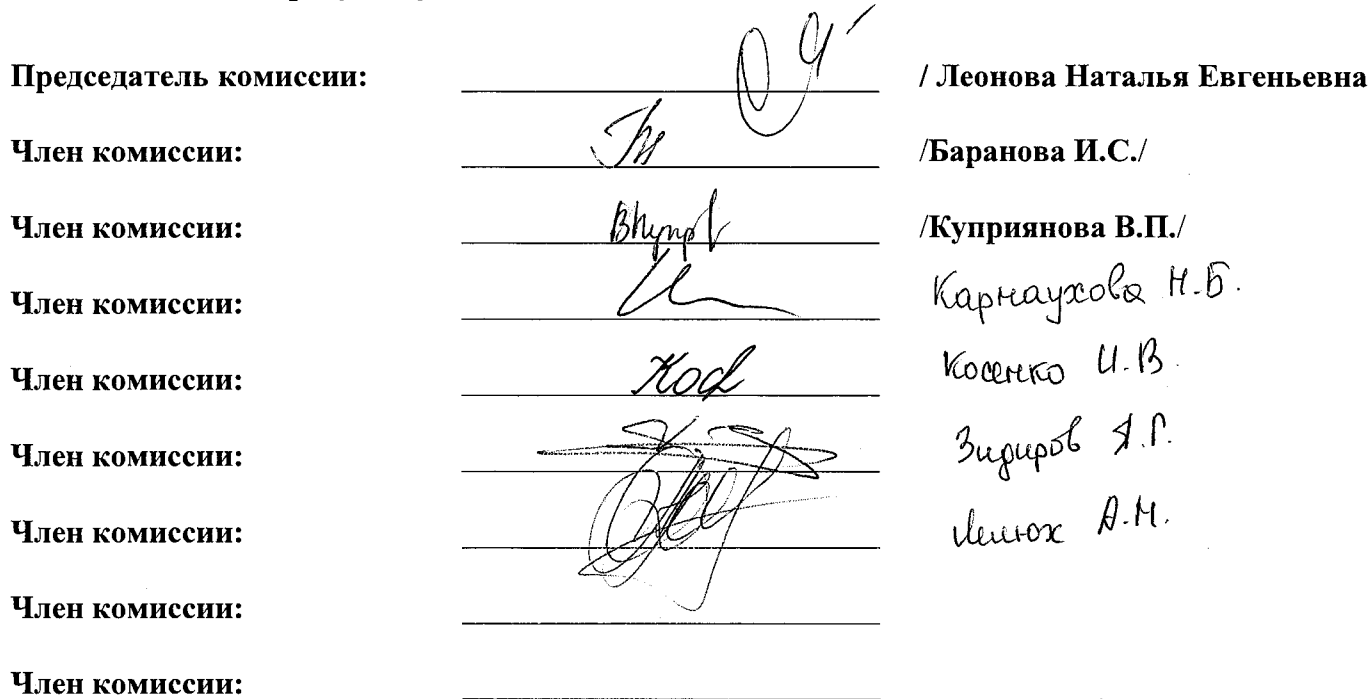 Председатель комиссии: / Леонова Наталья Евгеньевна
Член комиссии: /Баранова И.С./
Член комиссии: /Куприянова В.П./
Член комиссии: Карнаухова Н.Б.
Член комиссии: Косенко И.В.
Член комиссии: Зидиров Я.Г.
Член комиссии: А.Н.
Член комиссии:
Член комиссии: